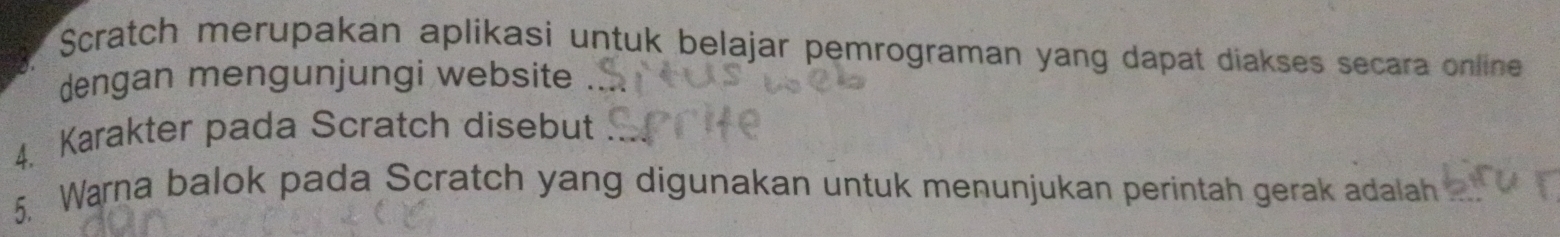 3. Scratch merupakan aplikasi untuk belajar pemrograman yang dapat diakses secara online
dengan mengunjungi website .... Situs web
4. Karakter pada Scratch disebut .... Sprite
5. Warna balok pada Scratch yang digunakan untuk menunjukan perintah gerak adalah .... biru
dan